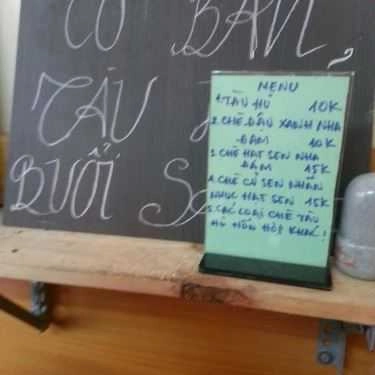 CÓ BÁN
TÀU
BUỔI
MENU
1. TÀU HỦ 10K
2. CHÈ ĐẬU XANH NHA
ĐAM 10K
3. CHÈ HẠT SEN NHA
ĐAM 15K
4. CHÈ CỦ SEN NHÃN
NHỤC HẠT SEN 15K
5. CÁC LOẠI CHÈ TÀU
HỦ HỖN HỢP KHÁC!